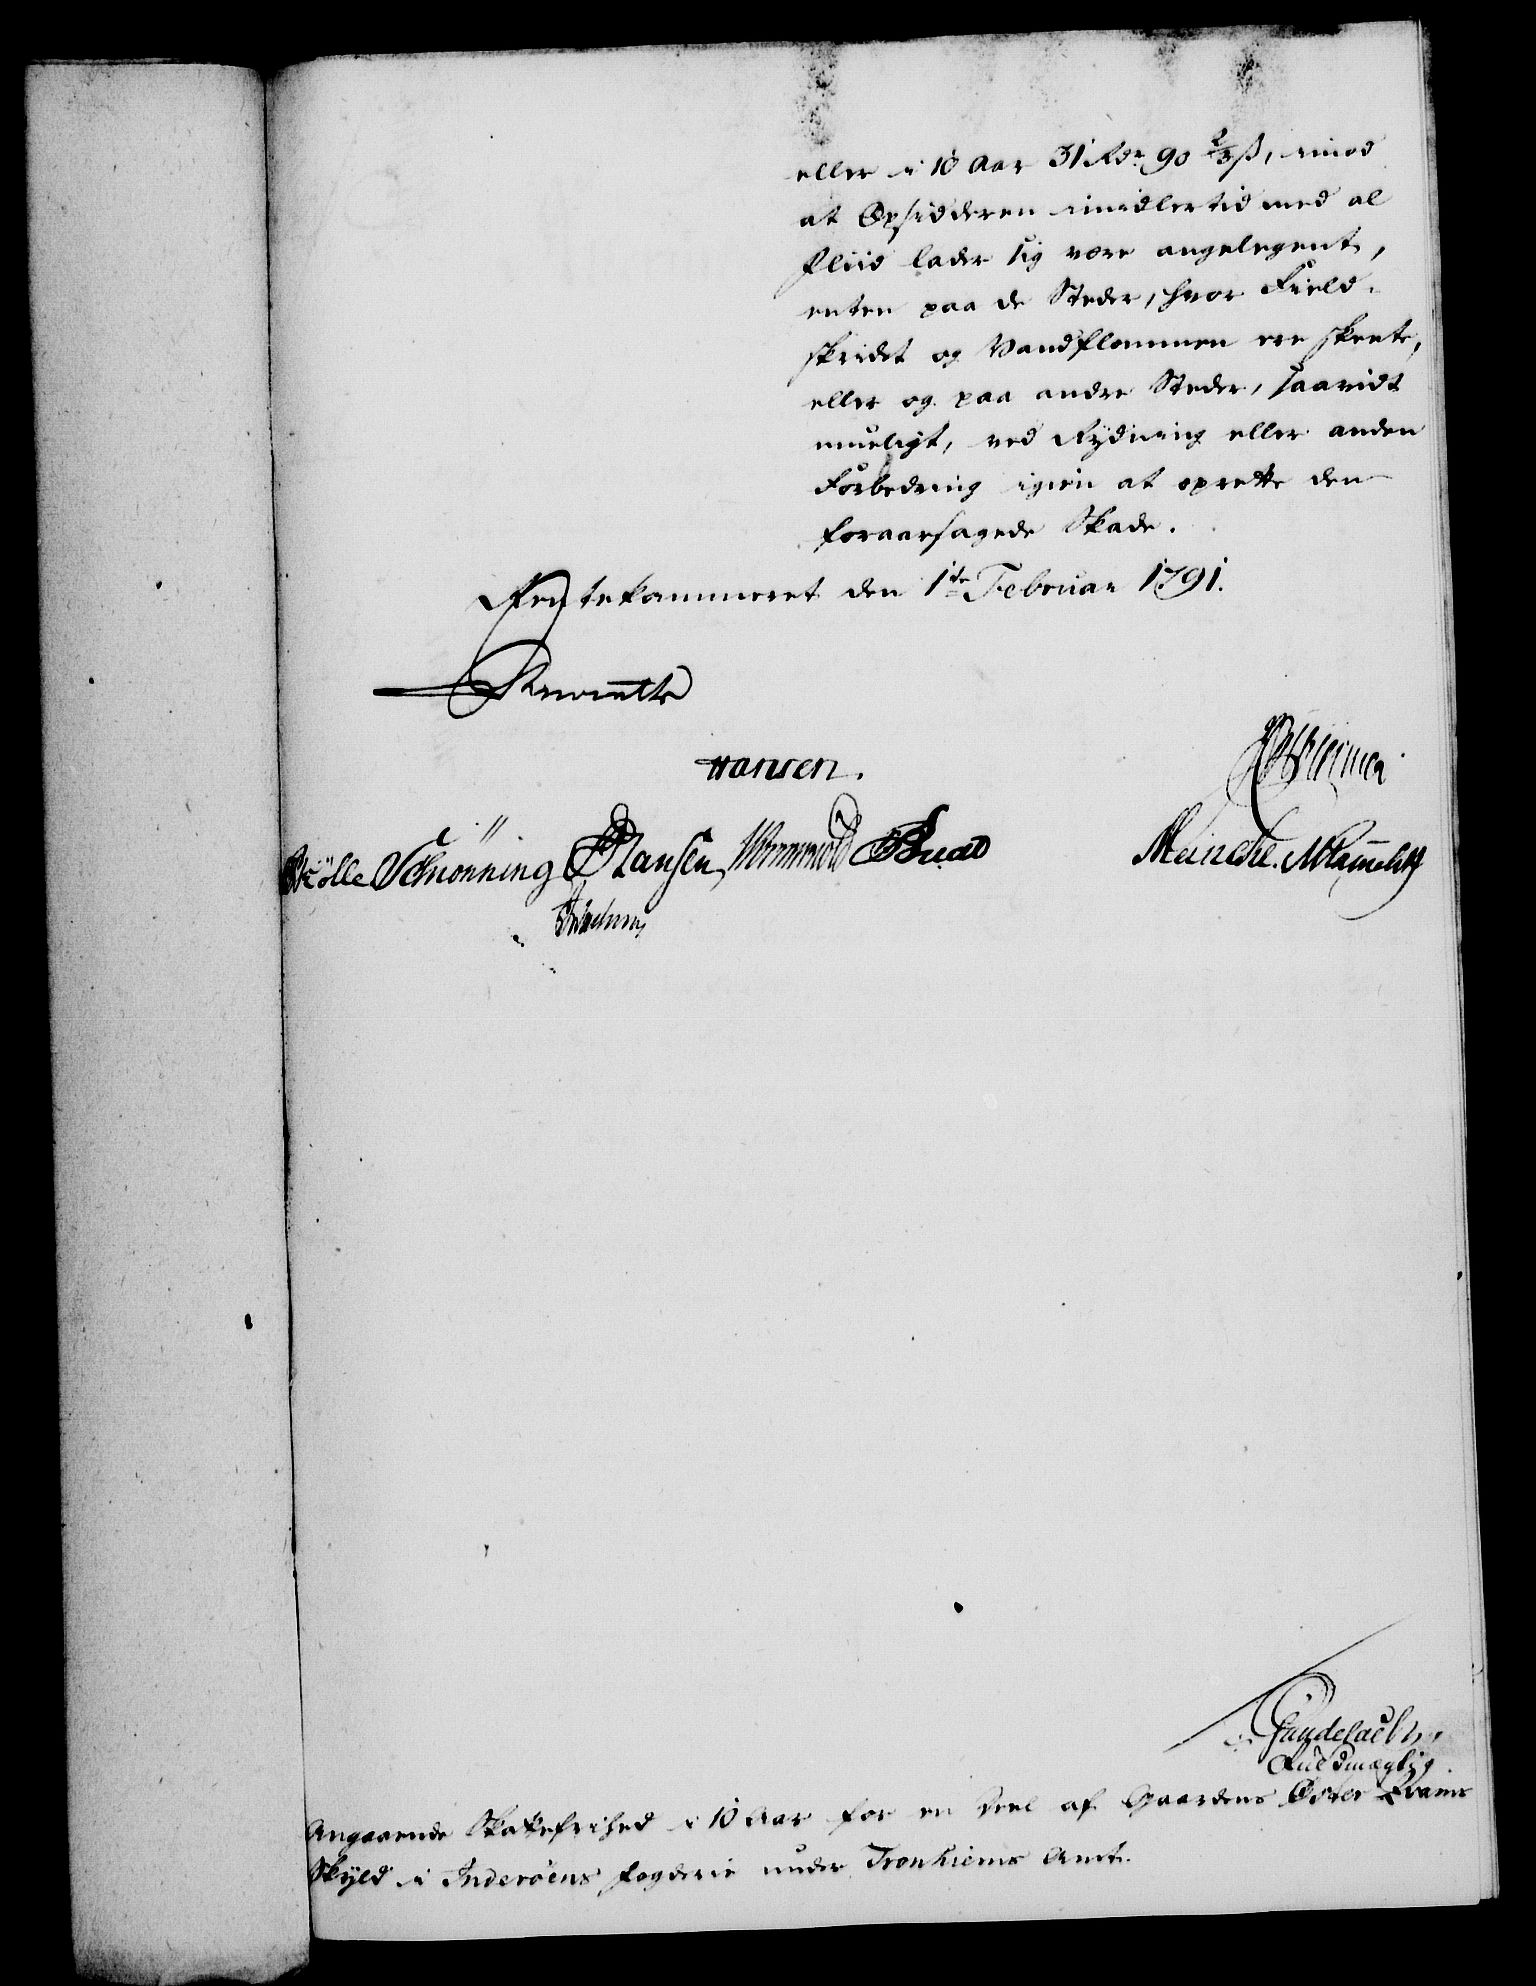 eller i 10 Aar 31 Rdr 90 2/3 ß, imod
at Opsidderen imidlertid med al
Fliid lader sig være angelegent,
enten paa de Steder, hvor Field-
skridet og Vandflommen ere skeete,
eller og paa andre Steder, saavidt
mueligt, ved Rydning eller anden
Forbedring igien at oprette den
foraarsagede Skade.
Rentekammeret den 1te Februar 1791.
Hansen.
Schiønning Hansen Wormskiold
Meincke.
Fuldmægtig.
Angaaende Skattefrihed i 10 Aar for en Deel af Gaardens Øster Kvams
Skyld i Inderöens Fogderie under Tronhiems Amt.